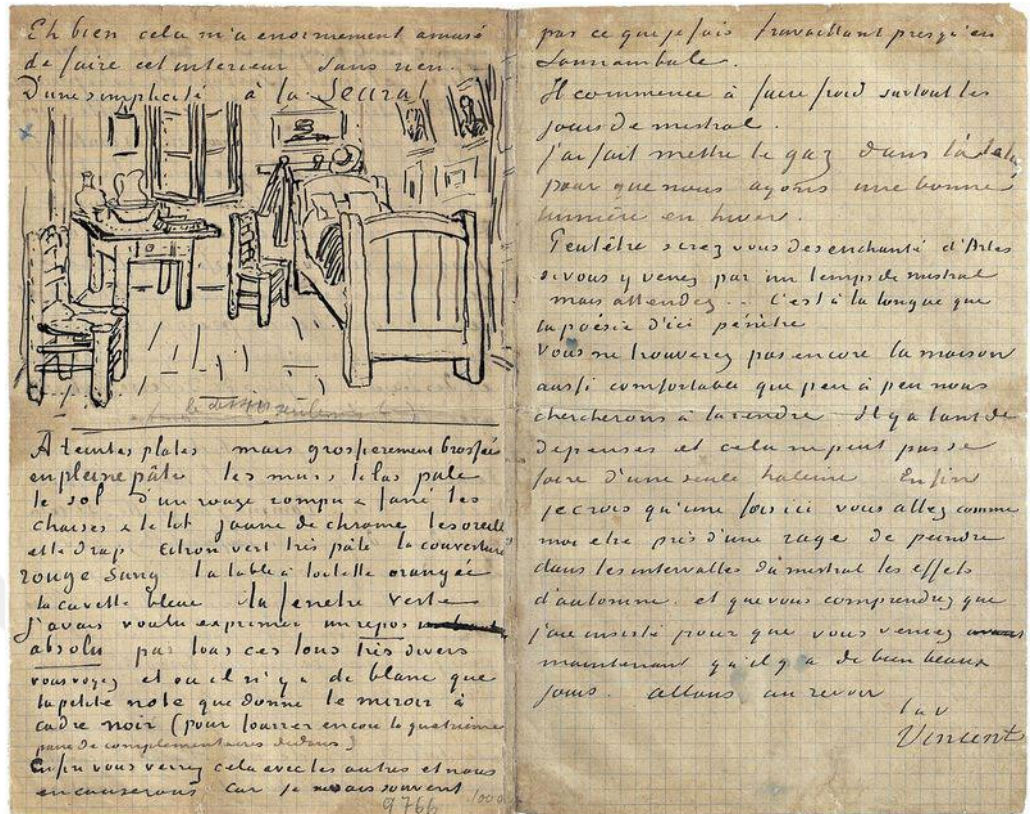 Eh bien cela m'a enormement amusé
de faire cet interieur sans rien.
D'une simplicité à la Seurat
à teintes plates mais grossierement brossées
en pleine pâte les murs lilas pale
le sol d'un rouge rompu & fané les
chaises & le lit jaune de chrome les oreill
et le drap citron vert très pâle la couverture
rouge sang la table à toilette orangée
la cuvette bleue la fenetre verte
j'avais voulu exprimer un repos
absolu par tous ces tons très divers
vous voyez et où il n'y a de blanc que
la petite note que donne le miroir à
cadre noir (pour fourrer encore la quatrième
paire de complementaires dedans)
Enfin vous verrez cela avec les autres et nous
en causerons car je ne sais souvent
9766
par ce que je fais travaillant presqu'en
somnambule.
Il commence à faire froid surtout les
jours de mistral.
j'ai fait mettre le gaz dans l'atel
pour que nous ayons une bonne
lumière en hiver.
Peutêtre serez vous desenchanté d'Arles
si vous y venez par un temps de mistral
mais attendez .. C'est à la longue que
la poésie d'ici pénètre
Vous ne trouverez pas encore la maison
aussi comfortable que peu à peu nous
chercherons à la rendre Il y a tant de
depenses et cela ne peut pas se
faire d'une seule haleine Enfin
je crois qu'une fois ici vous allez comme
moi etre pris d'une rage de peindre
dans les intervalles du mistral les effets
d'automne. et que vous comprendrez que
j'aie insisté pour que vous veniez
maintenant qu'il y a de bien beaux
jours. allons au revoir
t. à v.
Vincent